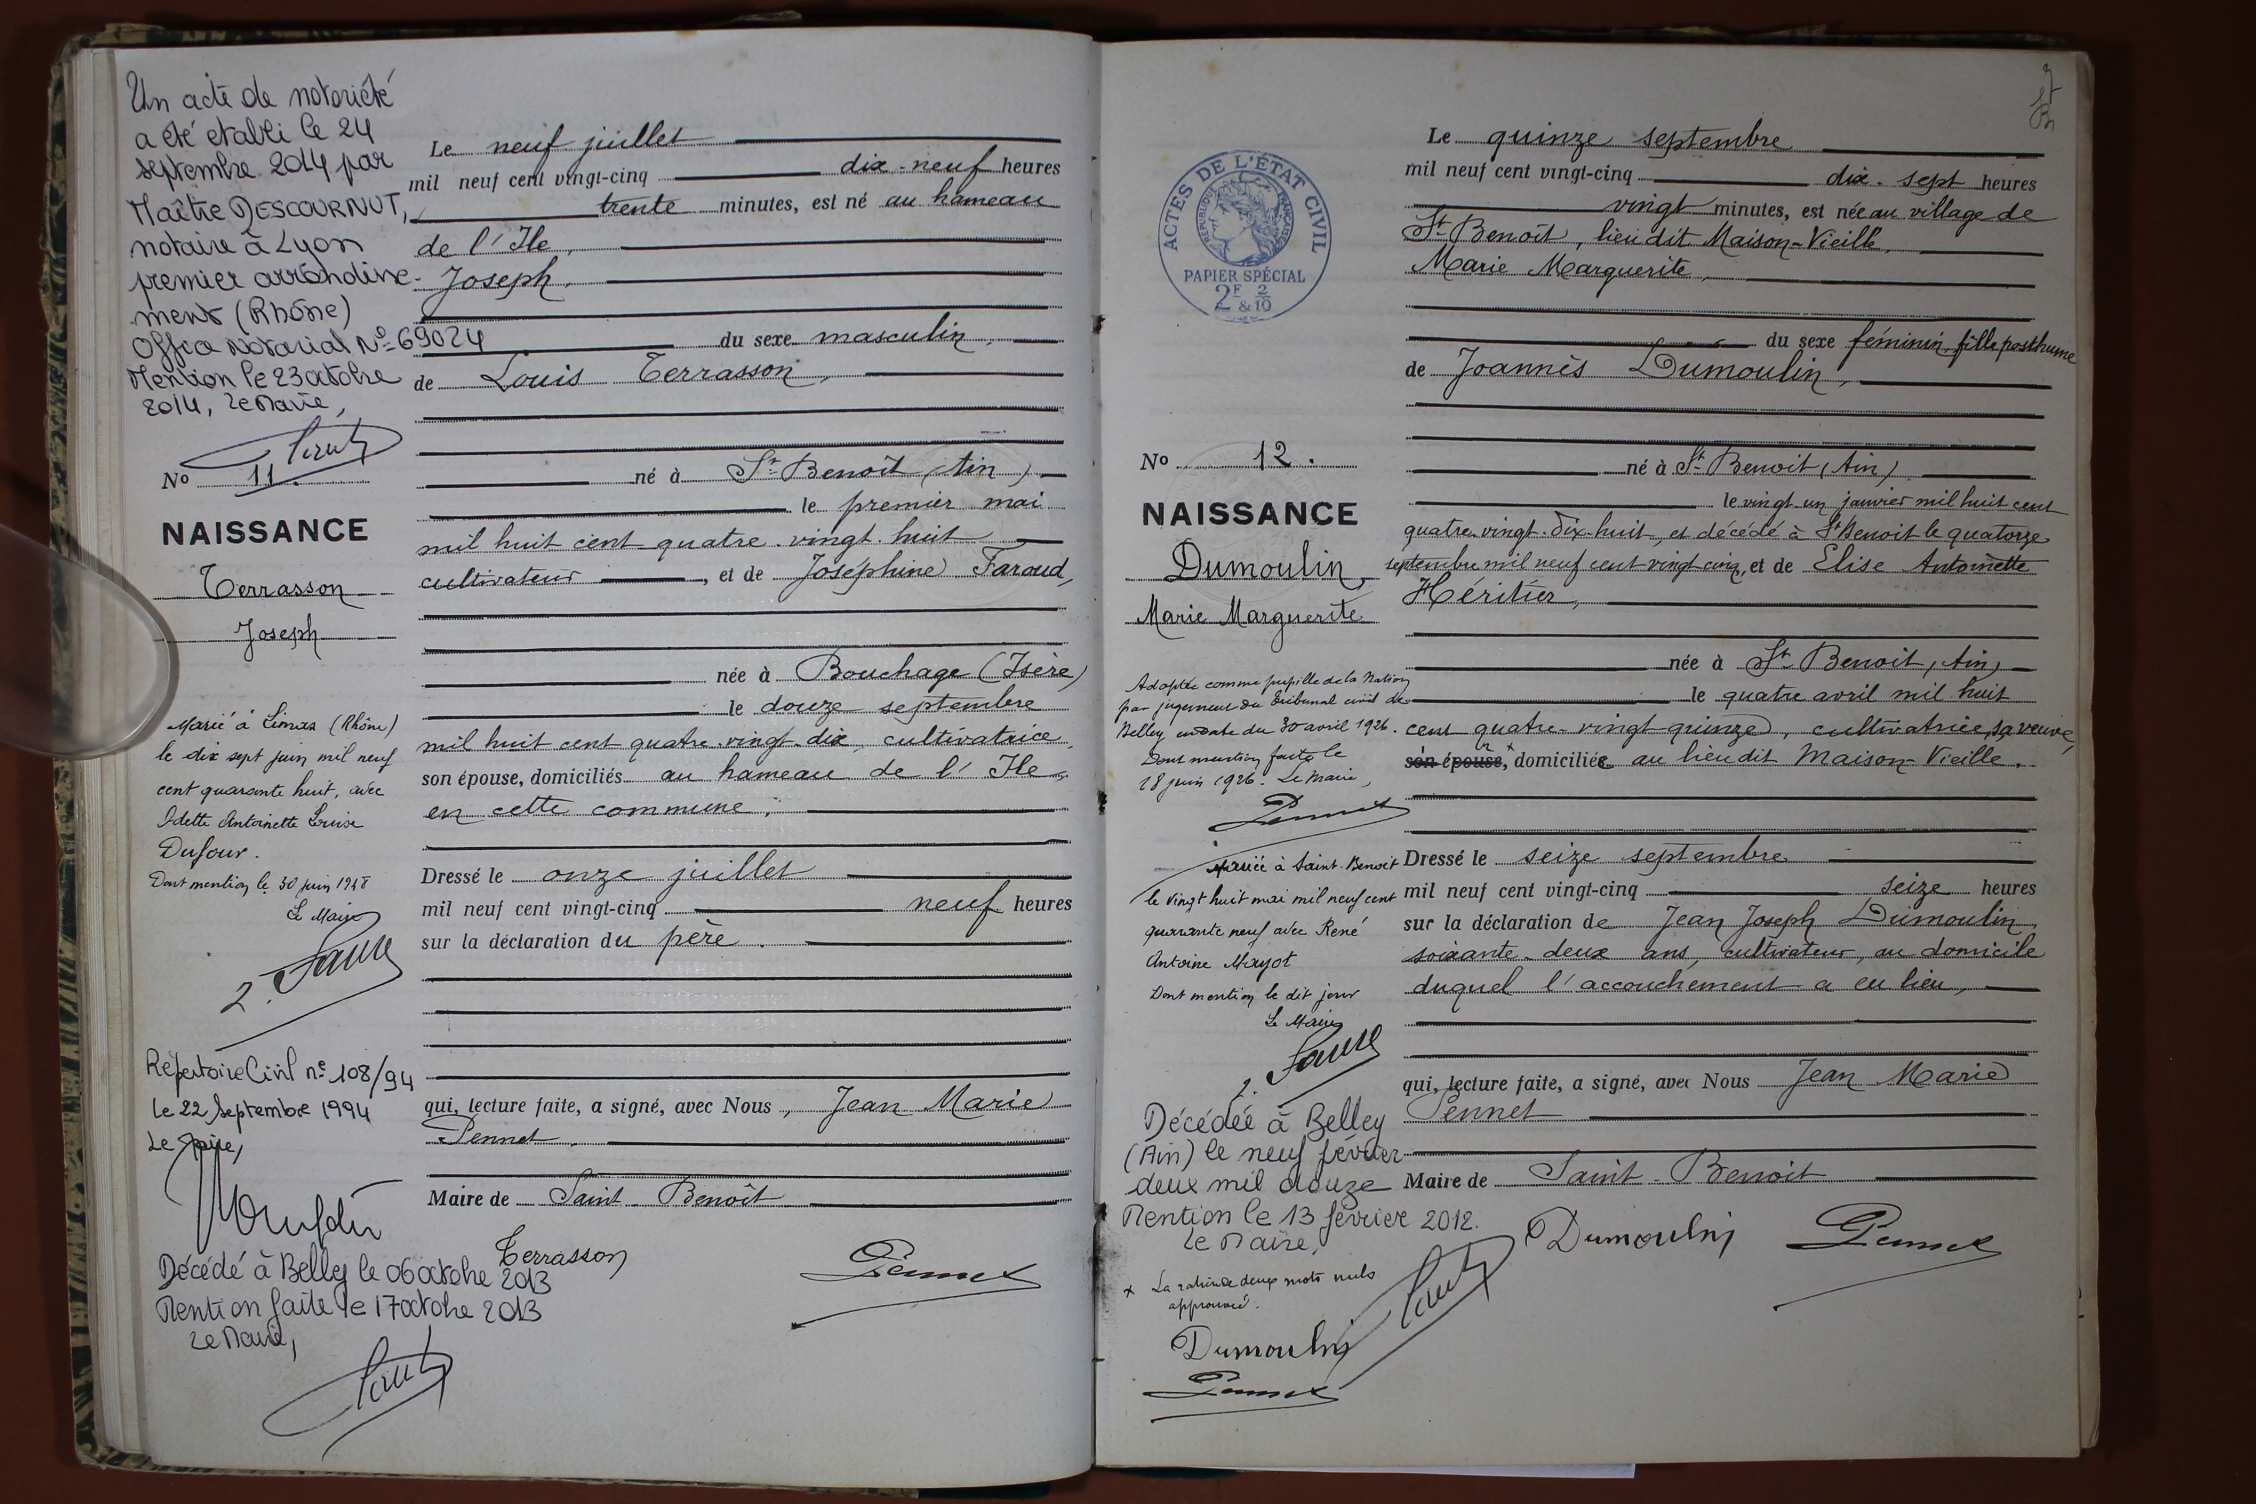 Un acte de notoriété
a été etabli le 24
septembre 2014 par
Maître DESCOURNUT,
notaire à Lyon
premier arrondisse-
ment (Rhône)
Office notarial N° 69024
Mention le 23 octobre
2014, Le Maire,
No 11.
NAISSANCE
Terrasson
Joseph
Marié à Limas (Rhône)
le dix sept juin mil neuf
cent quarante huit, avec
Odette Antoinette Louise
Dufour.
Dont mention le 30 juin 1948
Le Maire
Répertoire Civil n° 108/94
le 22 Septembre 1994
Le Maire,
Décédé à Belley le 06 octobre 2013
Mention faite le 17 octobre 2013
Le Maire,
Le neuf juillet
mil neuf cent vingt-cinq dix-neuf heures
trente minutes, est né au hameau
de l'Ile,
Joseph,
du sexe masculin,
de Louis Terrasson,
né à St Benoît (Ain)
le premier mai
mil huit cent quatre-vingt-huit
cultivateur, et de Joséphine Faraud,
née à Bouchage (Isère)
le douze septembre
mil huit cent quatre-vingt-dix, cultivatrice,
son épouse, domiciliés au hameau de l'Ile,
en cette commune.
Dressé le onze juillet
mil neuf cent vingt-cinq neuf heures
sur la déclaration du père.
qui, lecture faite, a signé, avec Nous, Jean Marie
Pennet.
Maire de Saint-Benoît
Terrasson
Pennet
ACTES DE L'ÉTAT CIVIL
RÉPUBLIQUE FRANÇAISE
PAPIER SPÉCIAL
2F & 2/10
No 12.
NAISSANCE
Dumoulin
Marie Marguerite
Adoptée comme pupille de la Nation
par jugement du Tribunal civil de
Belley en date du 30 avril 1926.
Dont mention faite le
18 juin 1926. Le Maire,
Pennet
Mariée à Saint-Benoit
le vingt huit mai mil neuf cent
quarante neuf avec René
Antoine Mayot
Dont mention le dit jour
Le Maire
Décédée à Belley
(Ain) le neuf février
deux mil douze
Mention le 13 février 2012.
Le Maire,
x La rature de deux mots nuls
approuvé.
Dumoulin
Pennet
Le quinze septembre
mil neuf cent vingt-cinq dix-sept heures
vingt minutes, est née au village de
St Benoît, lieu dit Maison-Vieille,
Marie Marguerite,
du sexe féminin, fille posthume
de Joannès Dumoulin,
né à St Benoit (Ain)
le vingt-un janvier mil huit cent
quatre-vingt-dix-huit, et décédé à St Benoit le quatorze
septembre mil neuf cent vingt cinq, et de Elise Antoinette
Héritier,
née à St Benoit, (Ain)
le quatre avril mil huit
cent quatre-vingt-quinze, cultivatrice, sa veuve,
son épouse, domiciliée au lieu dit Maison-Vieille.
Dressé le seize septembre
mil neuf cent vingt-cinq seize heures
sur la déclaration de Jean Joseph Dumoulin,
soixante-deux ans, cultivateur, au domicile
duquel l'accouchement a eu lieu,
qui, lecture faite, a signé, avec Nous Jean Marie
Pennet
Maire de Saint-Benoit
Dumoulin
Pennet